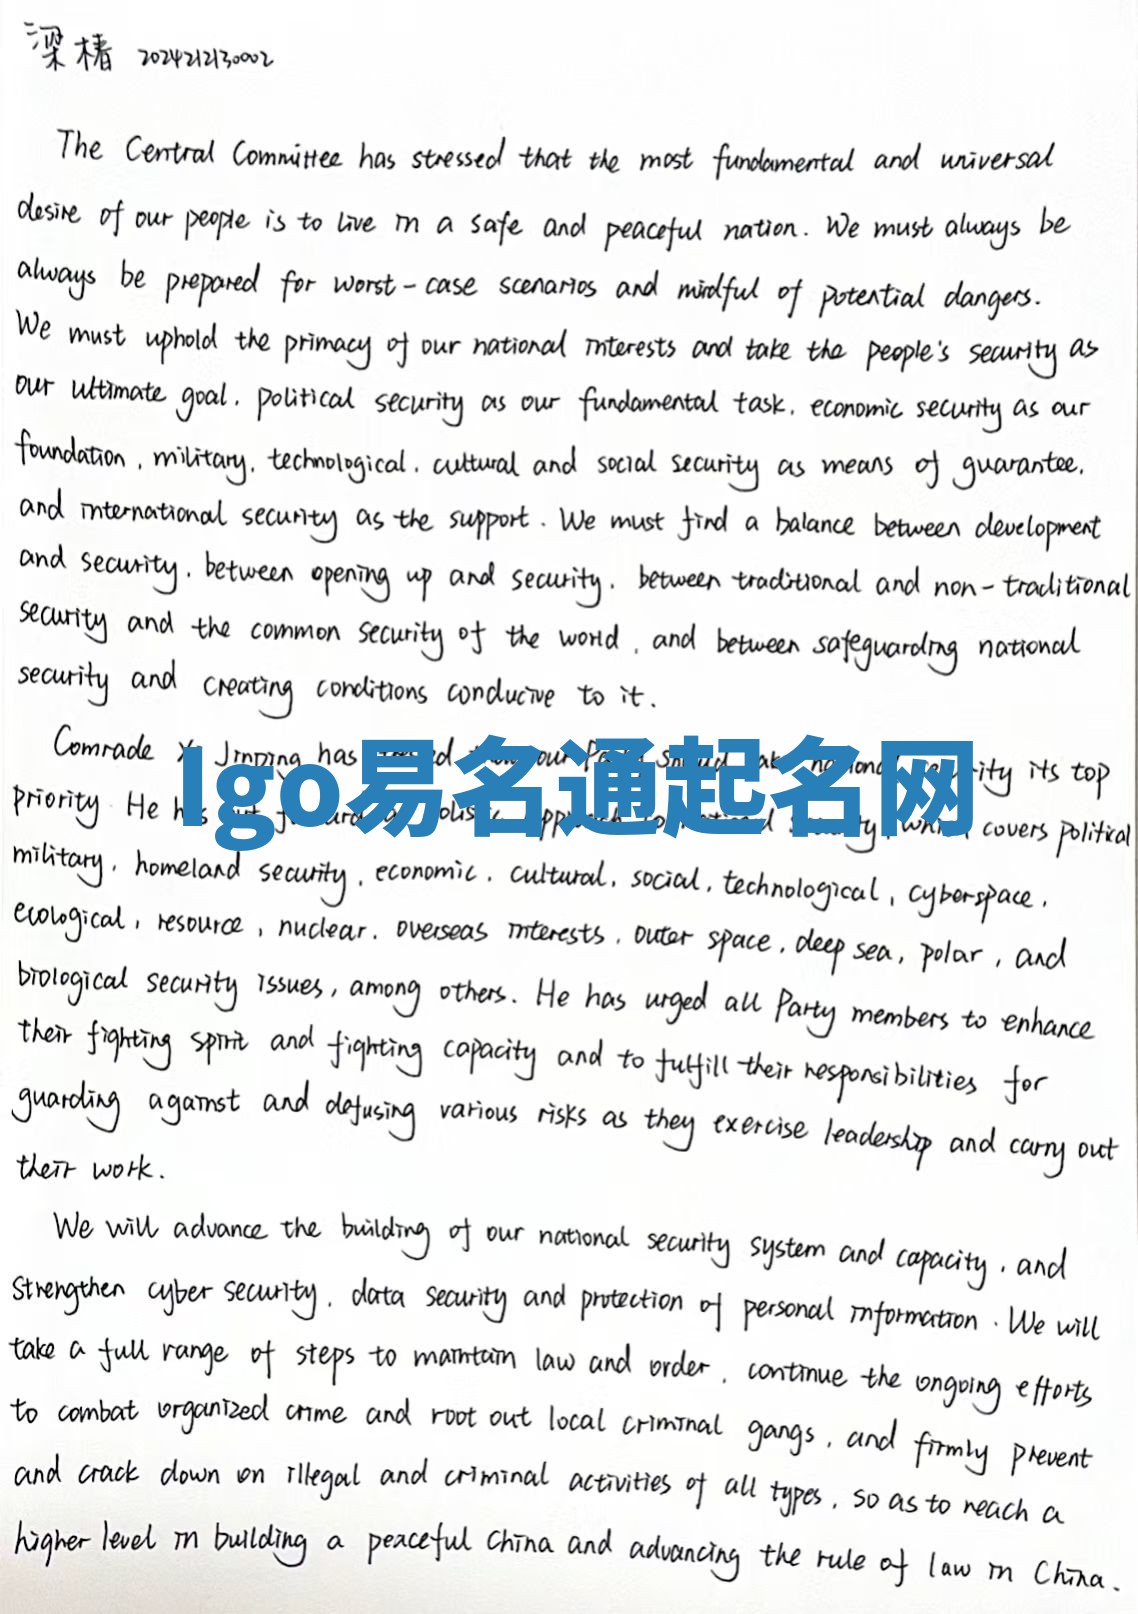 梁椿 2024212130002
The Central Committee has stressed that the most fundamental and universal
desire of our people is to live in a safe and peaceful nation. We must always be
always be prepared for worst-case scenarios and mindful of potential dangers.
We must uphold the primacy of our national interests and take the people's security as
our ultimate goal, political security as our fundamental task, economic security as our
foundation, military, technological, cultural and social security as means of guarantee,
and international security as the support. We must find a balance between development
and security, between opening up and security, between traditional and non-traditional
security and the common security of the world, and between safeguarding national
security and creating conditions conducive to it.
Comrade Xi Jinping has our its top
lgo易名通起名网
priority. He has covers political
military, homeland security, economic, cultural, social, technological, cyberspace,
ecological, resource, nuclear, overseas interests, outer space, deep sea, polar, and
biological security issues, among others. He has urged all Party members to enhance
their fighting spirit and fighting capacity and to fulfill their responsibilities for
guarding against and defusing various risks as they exercise leadership and carry out
their work.
We will advance the building of our national security system and capacity, and
strengthen cyber security, data security and protection of personal information. We will
take a full range of steps to maintain law and order, continue the ongoing efforts
to combat organized crime and root out local criminal gangs, and firmly prevent
and crack down on illegal and criminal activities of all types, so as to reach a
higher level in building a peaceful China and advancing the rule of law in China.